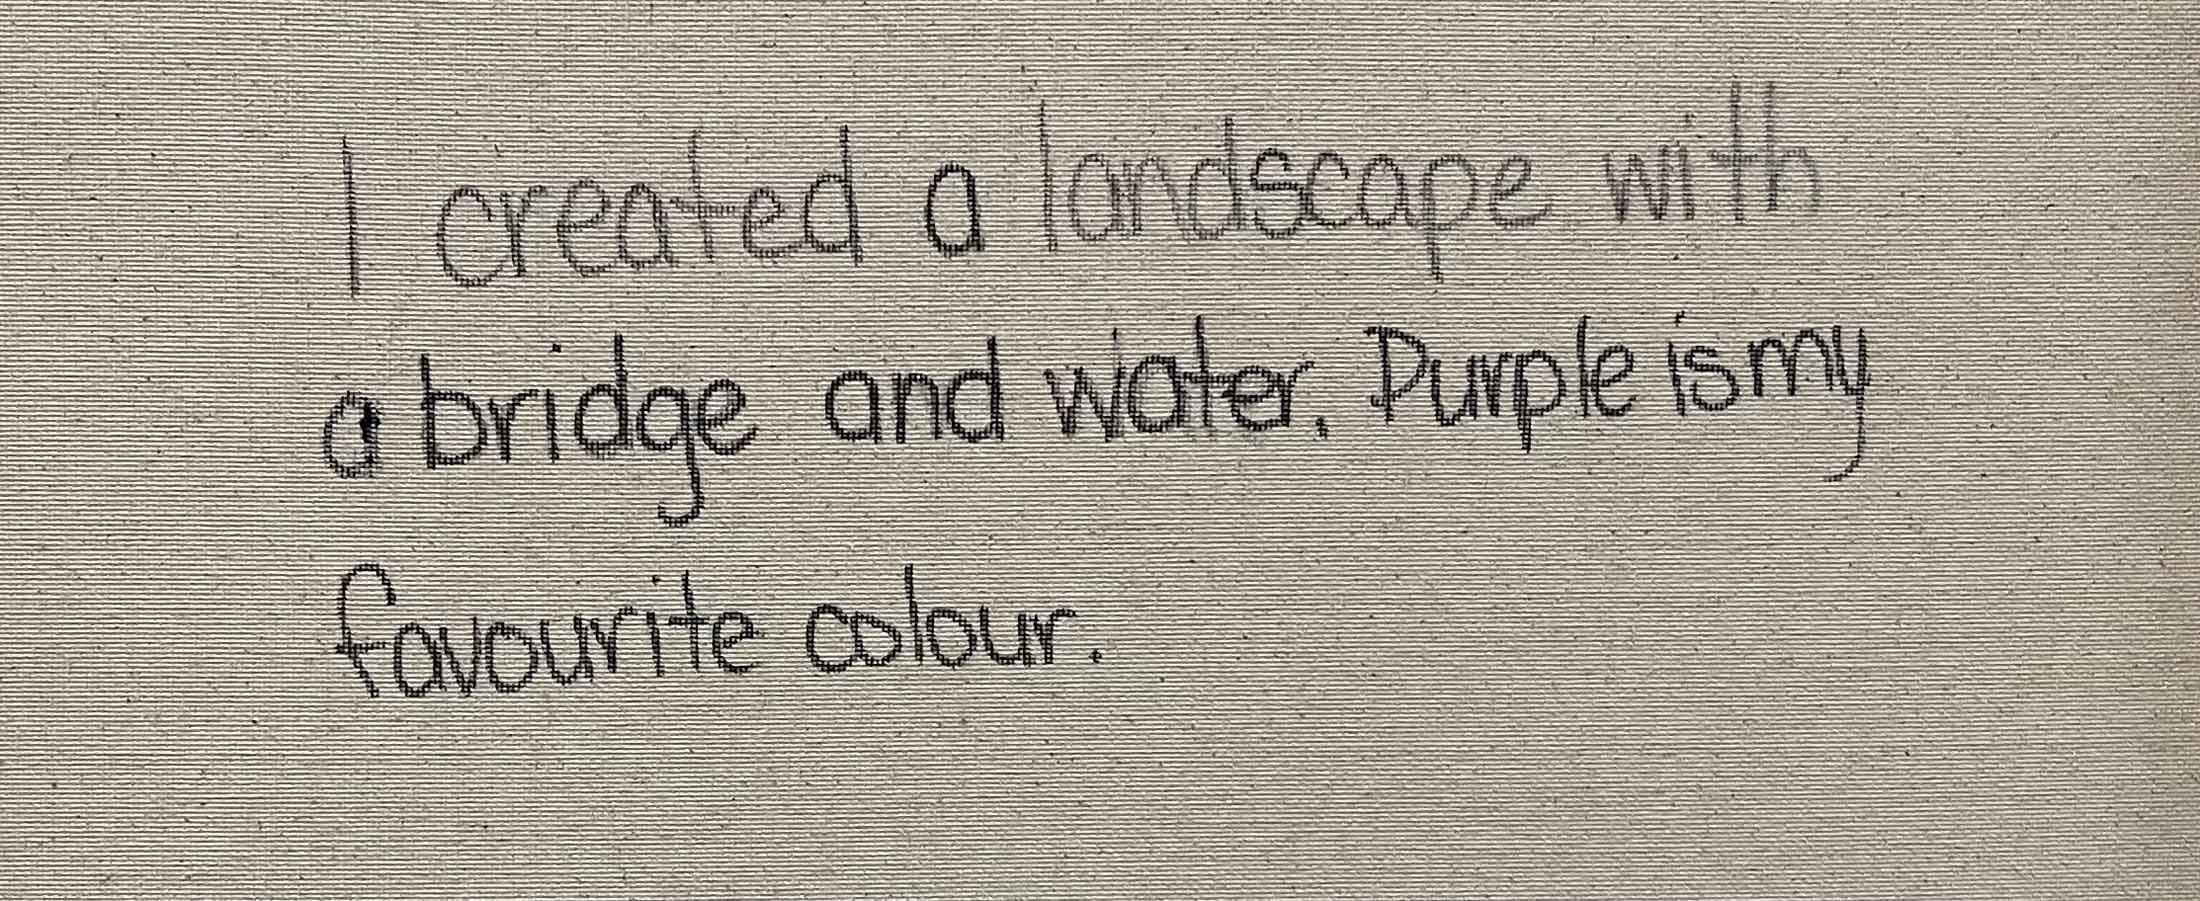 I created a landscape with
a bridge and water. Purple is my
favourite colour.